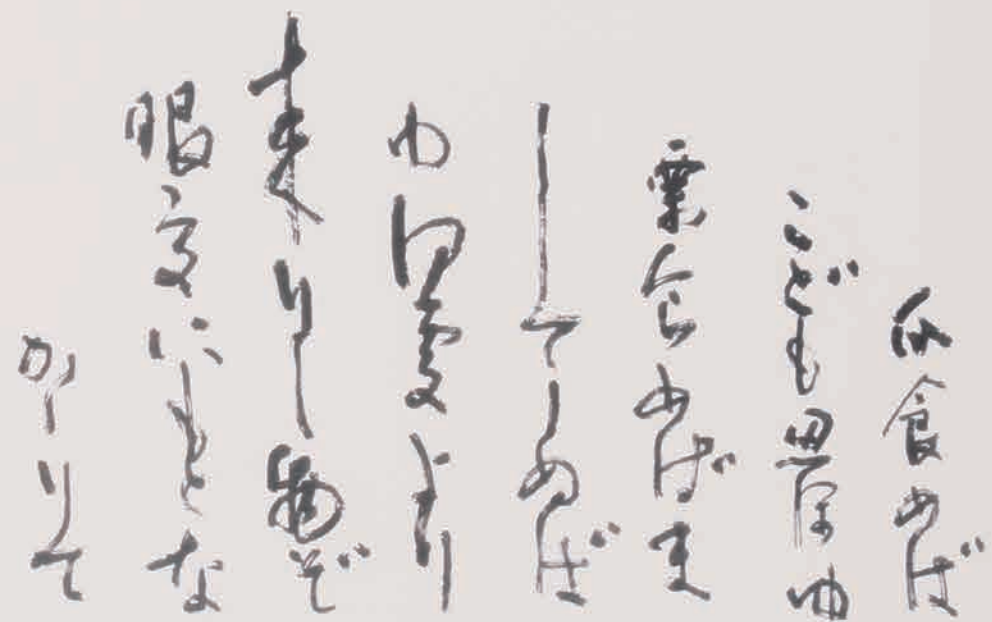 瓜食めば
こども思ほゆ
栗食めばま
してしぬば
ゆ何處より
来りし物ぞ
眼交にもとな
かゝりて